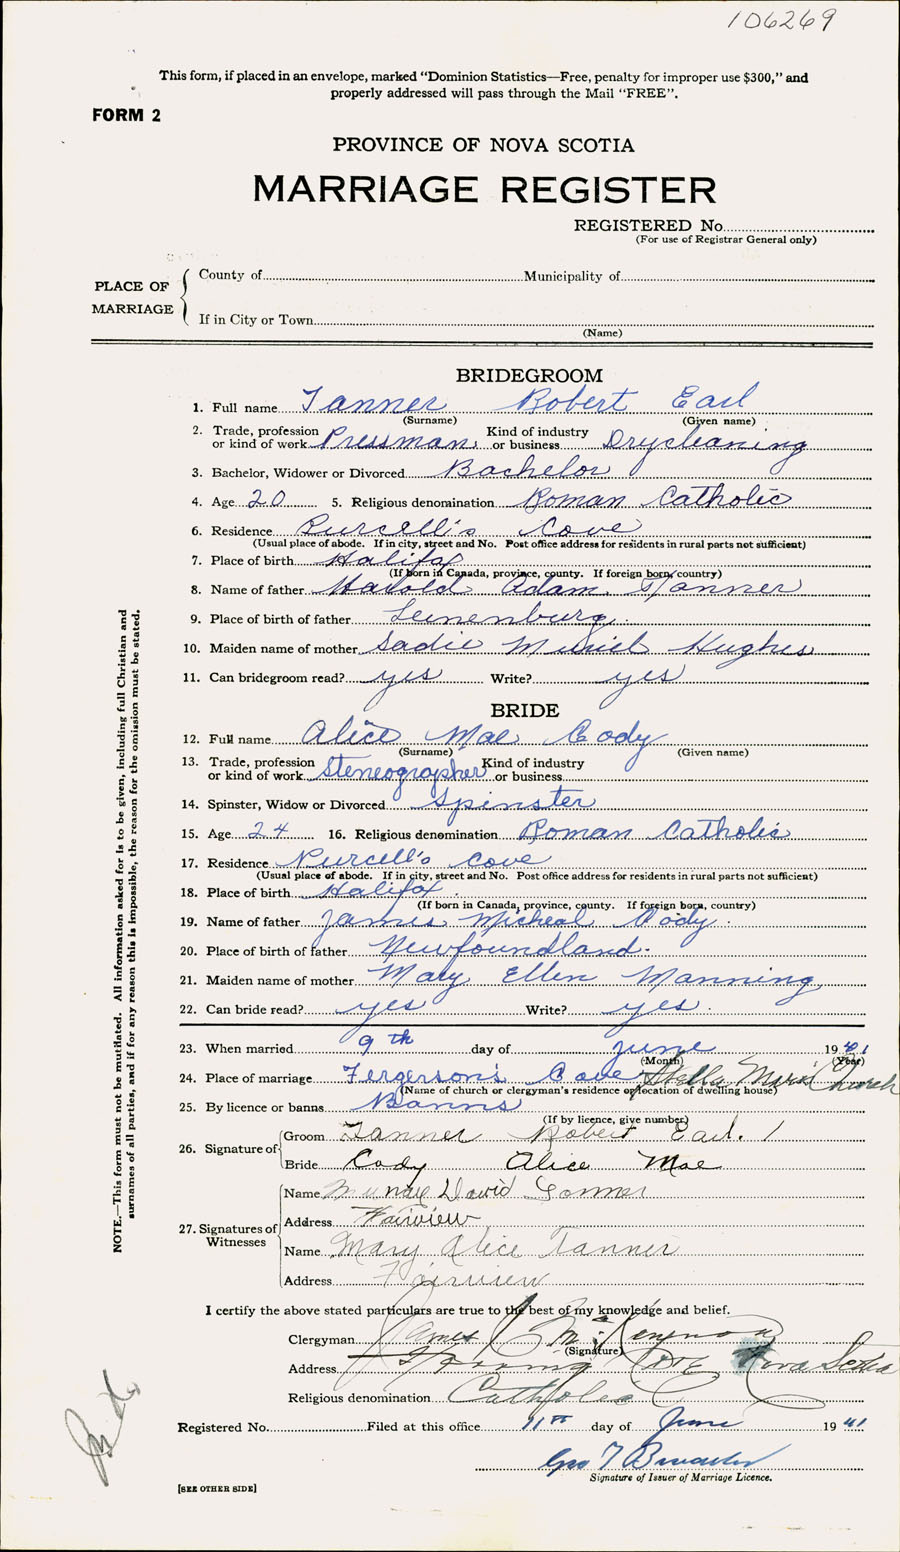 106269
This form, if placed in an envelope, marked "Dominion Statistics—Free, penalty for improper use $300," and
properly addressed will pass through the Mail "FREE".
FORM 2
PROVINCE OF NOVA SCOTIA
MARRIAGE REGISTER
REGISTERED No.
(For use of Registrar General only)
PLACE OF MARRIAGE
County of Municipality of
If in City or Town
(Name)
BRIDEGROOM
1. Full name Tanner Robert Earl
(Surname) (Given name)
2. Trade, profession or kind of work Pressman. Kind of industry or business Drycleaning
3. Bachelor, Widower or Divorced Bachelor
4. Age 20 5. Religious denomination Roman Catholic
6. Residence Purcell's Cove
(Usual place of abode. If in city, street and No. Post office address for residents in rural parts not sufficient)
7. Place of birth Halifax
(If born in Canada, province, county. If foreign born, country)
8. Name of father Harold Adam Tanner
9. Place of birth of father Lunenburg.
10. Maiden name of mother Sadie Muriel Hughes
11. Can bridegroom read? yes Write? yes
BRIDE
12. Full name Alice Mae Cody
(Surname) (Given name)
13. Trade, profession or kind of work Steneographer Kind of industry or business
14. Spinster, Widow or Divorced Spinster
15. Age 24 16. Religious denomination Roman Catholic
17. Residence Purcell's Cove
(Usual place of abode. If in city, street and No. Post office address for residents in rural parts not sufficient)
18. Place of birth Halifax.
(If born in Canada, province, county. If foreign born, country)
19. Name of father James Micheal Cody.
20. Place of birth of father Newfoundland.
21. Maiden name of mother Mary Ellen Manning
22. Can bride read? yes Write? yes.
23. When married 9th day of June 1941
(Month) (Year)
24. Place of marriage Fergerson's Cove Stella Maris Church
(Name of church or clergyman's residence or location of dwelling house)
25. By licence or banns Banns
(If by licence, give number)
26. Signature of Groom Tanner Robert Earl.
Bride Cody Alice Mae
27. Signatures of Witnesses
Name David
Address Fairview
Name Mary Alice Tanner
Address Fairview
I certify the above stated particulars are true to the best of my knowledge and belief.
Clergyman James
(Signature)
Address Cove Nova Scotia
Religious denomination Catholic
Registered No. Filed at this office 11th day of June 1941
Geo T
Signature of Issuer of Marriage Licence.
[SEE OTHER SIDE]
NOTE.—This form must not be mutilated. All information asked for is to be given, including full Christian and
surnames of all parties, and if for any reason this is impossible, the reason for the omission must be stated.